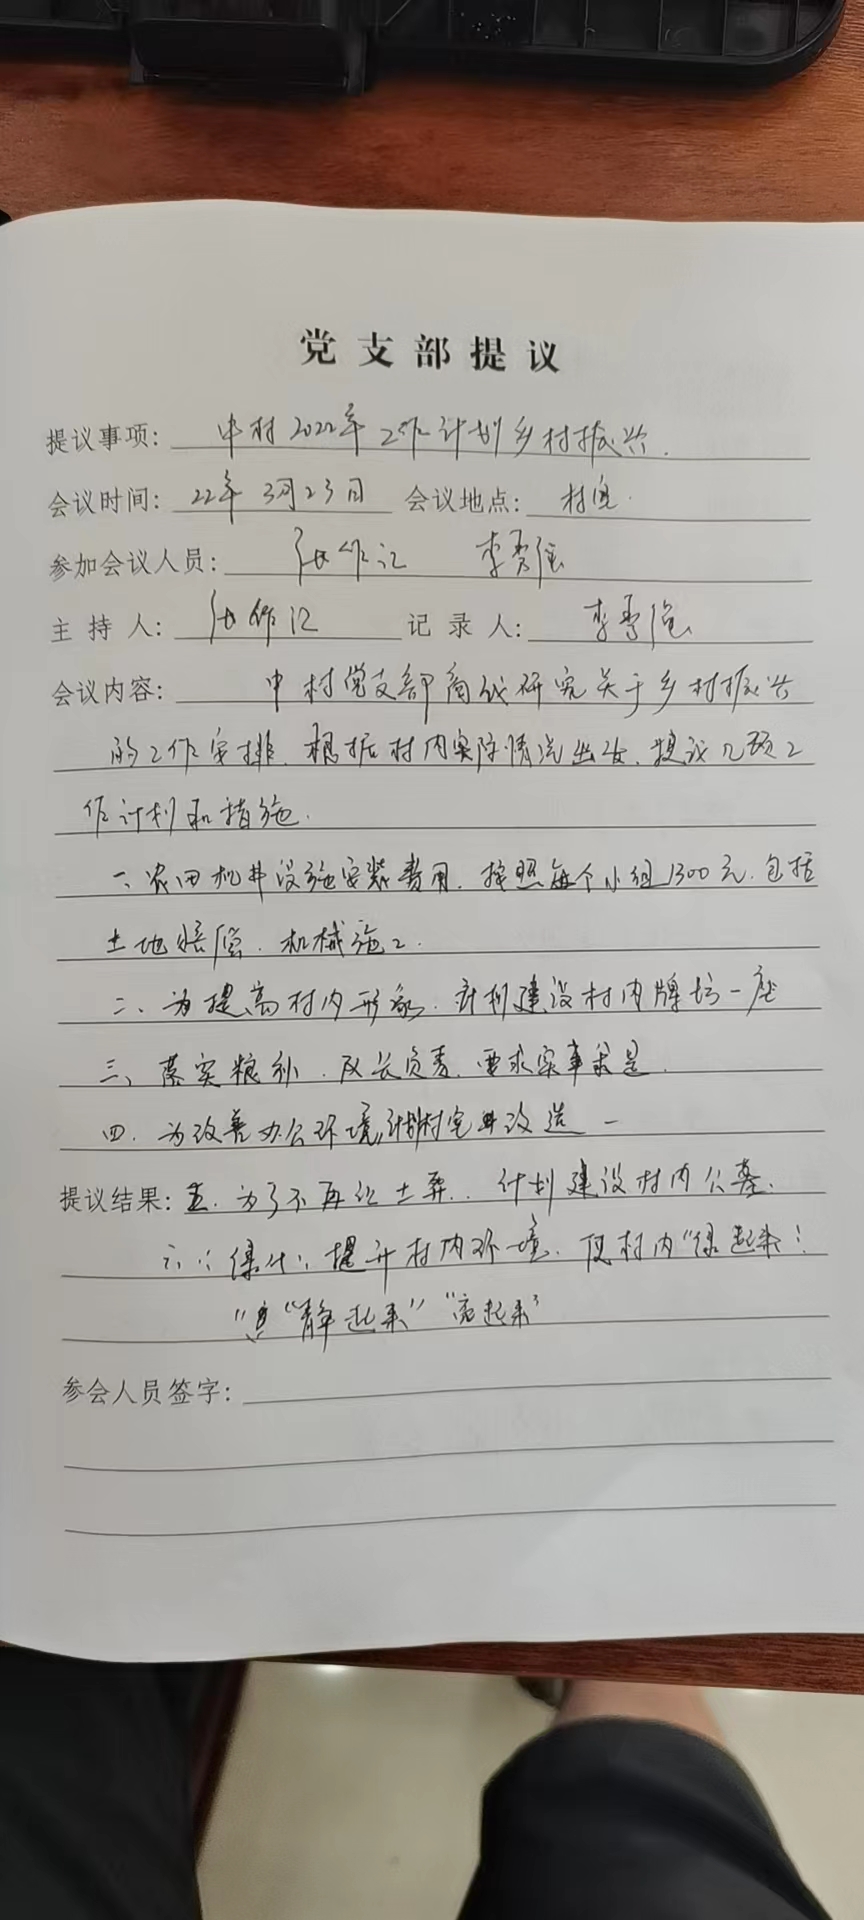 党支部提议
提议事项: 中村2022年工作计划乡村振兴.
会议时间: 22年3月23日 会议地点: 村室.
参加会议人员: 作记 李
主持人: 作记 记录人: 李
会议内容: 中村党支部商议研究关于乡村振兴
的工作安排. 根据村内实际情况出发. 提议几项工
作计划和措施.
一、农田机井设施安装费用. 按照每个小组1300元. 包括
土地赔偿. 机械施工.
二、为提高村内形象. 计划建设村内牌坊一座
三、落实粮补. 队长负责. 要求实事求是.
四. 为改善办公环境, 计划村室 改造 一
提议结果: 五. 为了不再 土葬.. 计划建设村内公墓.
六: 绿化: 提升村内环境. 使村内“绿起来!
“静起来” “亮起来”
参会人员签字: